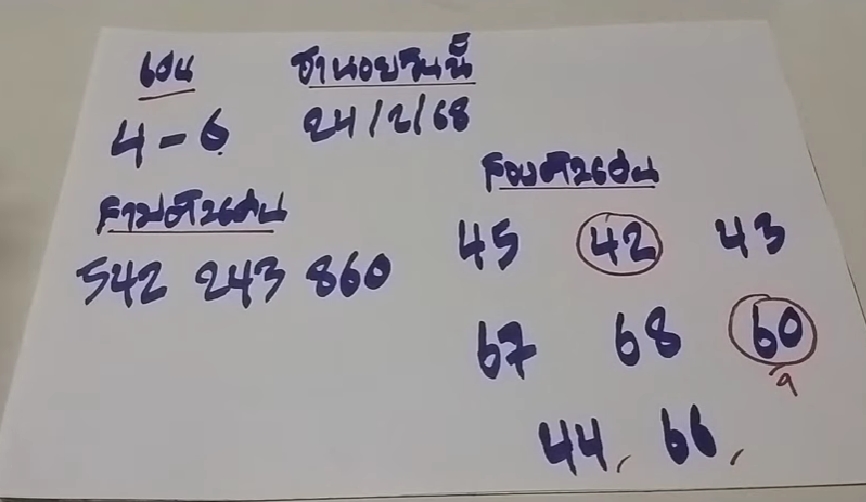 เด่น
ฮานอยวันนี้
4-6
24/2/68
สามตัวเด่น
542 243 860
สองตัวเด่น
45 42 43
67 68 60
44, 66,